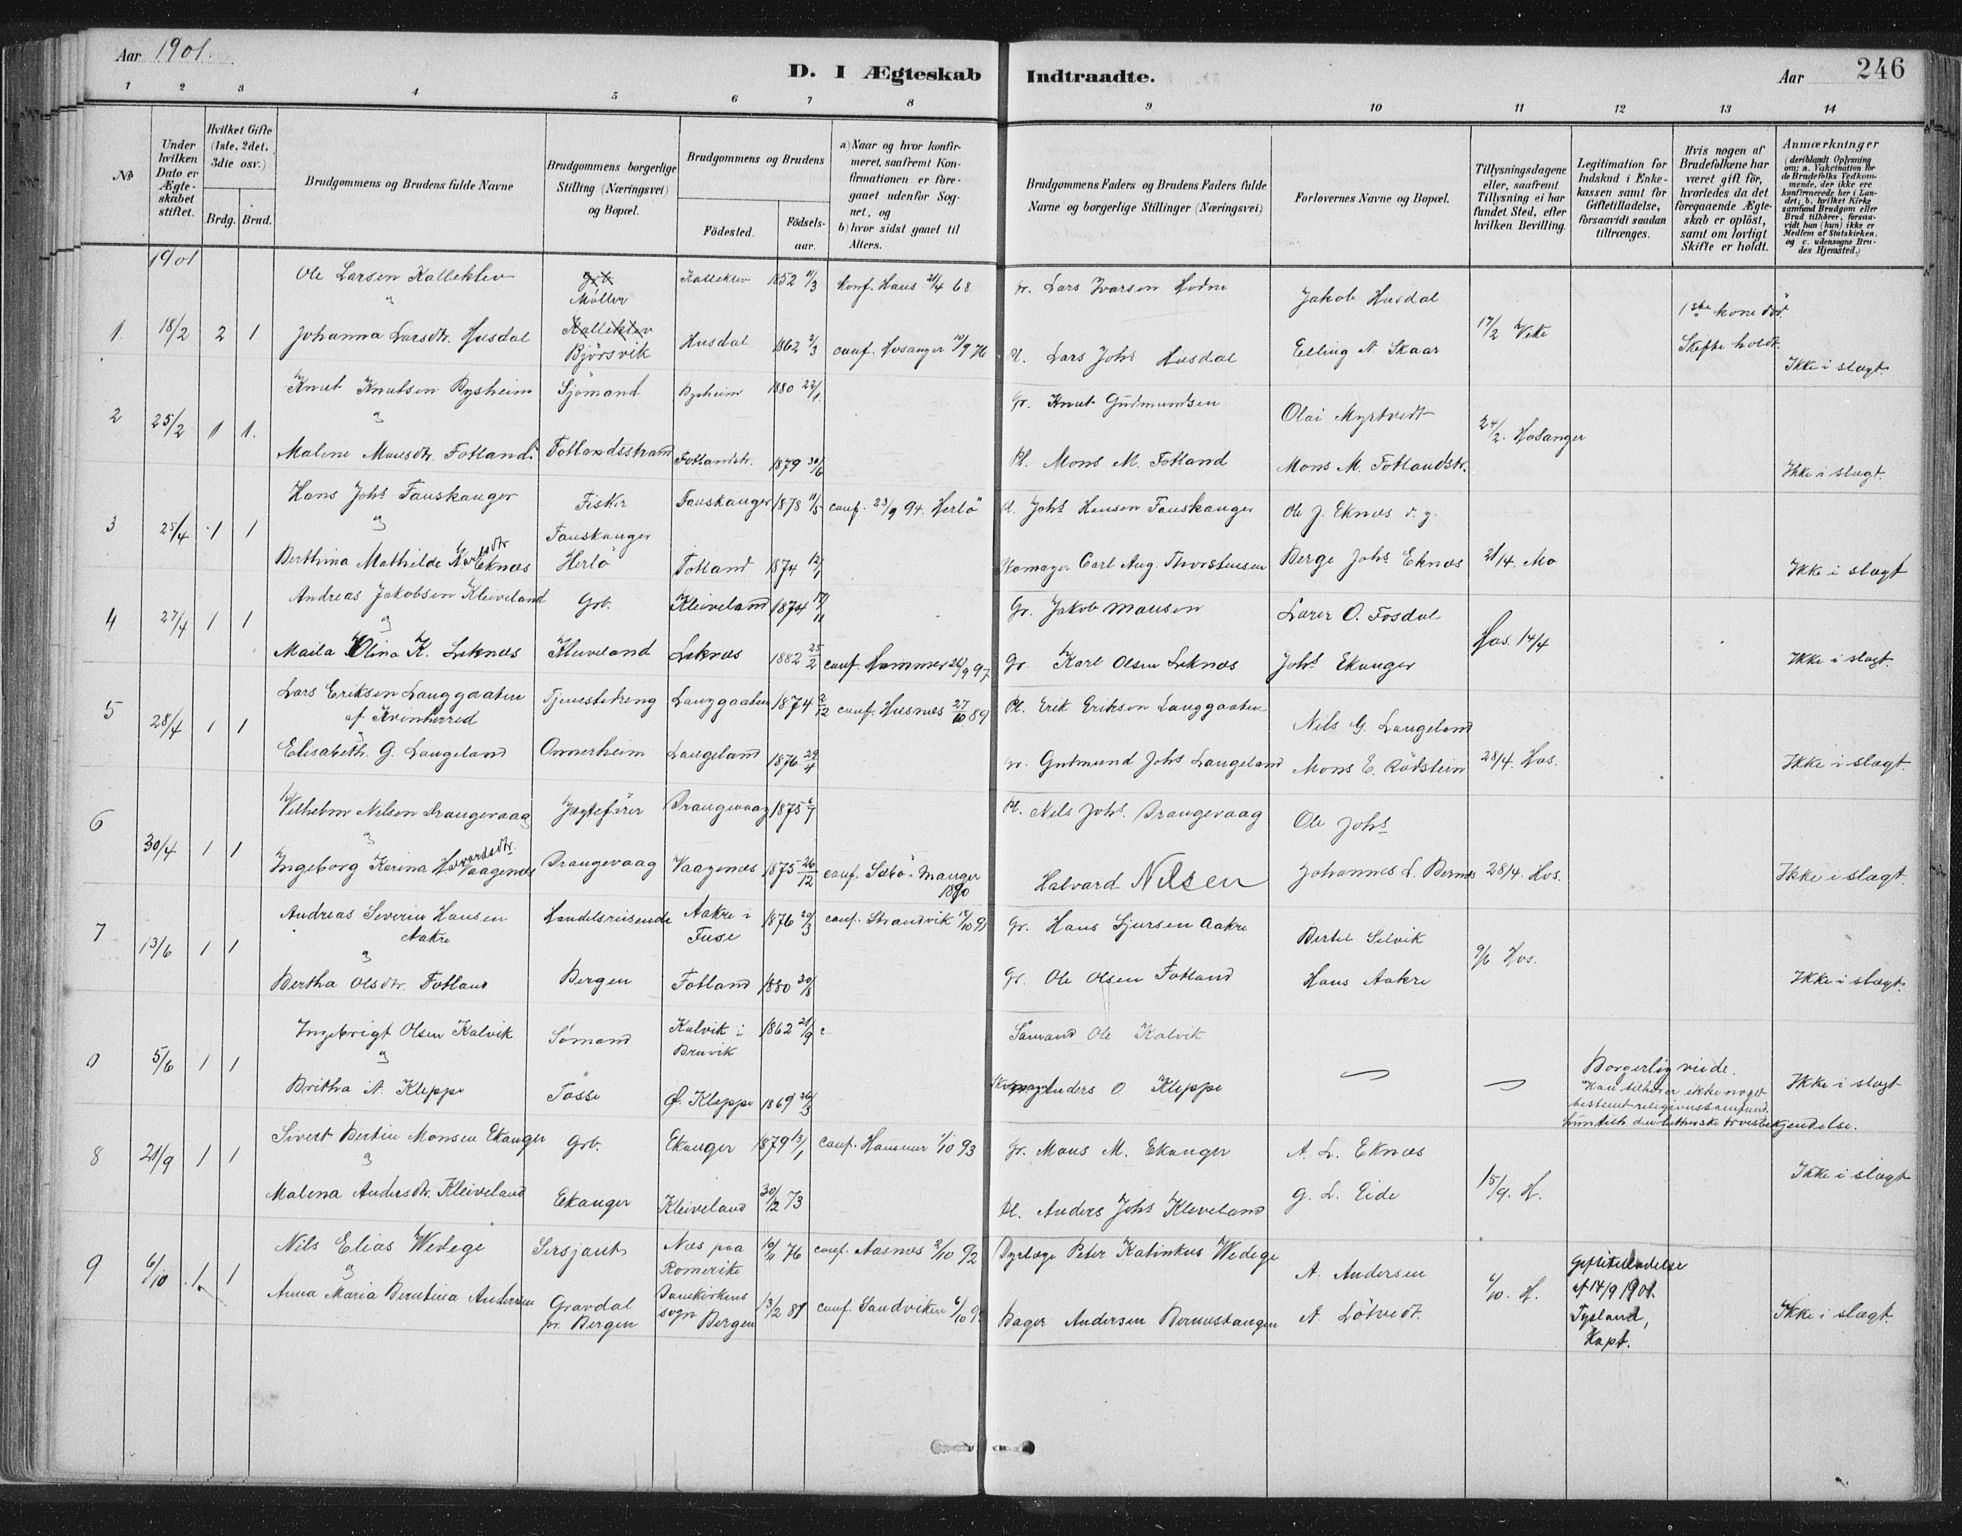 Aar 1901.
D. I Ægteskab
Indtraadte.
Aar
246
1 2 3 4 5 6 7 8 9 10 11 12 13 14
№
Under hvilken Dato er Ægteskabet stiftet.
Hvilket Gifte (1ste, 2det, 3die osv.)
Brdg. Brud.
Brudgommens og Brudens fulde Navne
Brudgommens borgerlige Stilling (Næringsvei) og Bopæl.
Brudgommens og Brudens
Födested. Födsels-aar.
a) Naar og hvor konfirmeret, saafremt Konfirmationen er foregaaet udenfor Sognet, og
b) hvor sidst gaaet til Alters.
Brudgommens Faders og Brudens Faders fulde Navne og borgerlige Stillinger (Næringsvei)
Forlovernes Navne og Bopæl.
Tillysningsdagene eller, saafremt Tillysning ei har fundet Sted, efter hvilken Bevilling.
Legitimation for Indskud i Enkekassen samt for Giftetilladelse, forsaavidt saadan tiltrænges.
Hvis nogen af Brudefolkene har været gift för, hvorledes da det foregaaende Ægteskab er oplöst, samt om lovligt Skifte er holdt.
Anmærkninger (deriblandt Oplysning om: a. Vakcination for de Brudefolks Vedkommende, der ikke ere konfirmerede her i Landet; b. hvilket Kirkesamfund Brudgom eller Brud tilhörer, forsaavidt han (hun) ikke er Medlem af Statskirken, og c. udensogns Brudes Hjemsted.)
1901
Ole Larsen Kalleklev Møller Kalleklev 1852 11/3 Konf. Haus 21/4 68 Lars Ivarsen Hodne Jakob Husdal 1ste kone död
1 18/2 2 1 Johanna Larsdtr. Husdal Kalleklev Björsvik Husdal 1862 2/3 conf. Hosanger 10/9 76 Pl. Lars Johs Husdal Elling A. Skaar 17/2 Skifte holdt. Ikke i slægt.
Knut Knutsen Bysheim Sjömand Bysheim 1880 22/1 Gr. Knut Gudmundsen Olai Myrtvedt
2 25/2 1 1. 24/2. Hosanger
Malene Monsdtr. Fotland Fotlandsstrand Fotlandstr. 1879 30/6 Pl. Mons M. Fotland Mons M. Fotlandstr. Ikke i slægt.
Hans Johs Fauskanger Fisker Fauskanger 1878 11/5 conf. 23/9 94. Herlö Pl. Johs Hansen Fauskanger Ole J. Eknes
3 25/4 1 1 Fauskanger
Berthina Mathilde Karlsdtr Eknæs Herlö Fotland 1874 12/1 Carl Aug. Thorstensen Berge Johs Eknæs 21/4. Mo Ikke i slægt
Andreas Jakobsen Kleiveland Grb. Kleiveland 1874 17/11 Gr. Jakob Monsen Lærer O. Fosdal
4 27/4 1 1 Hos. 14/4
Maila Olina K. Leknæs Kleiveland Leknæs 1882 25/2 conf. Hammer 26/9 97 Gr. Karl Olsen Leknæs Johs Ekanger Ikke i slægt.
Lars Eriksen Langgaaten Tjenestedreng Langgaaten 1874 2/12 conf. Husnes 27/10 89 Pl. Erik Erikson Langgaaten
af Kvinherred
5 28/4 1 1 Nils G. Langeland
Elisabeth G. Langeland Onnerheim Langeland 1876 29/4 Gudmund Johs Langeland Mons E. Rödstein 28/4. Hos. Ikke i slægt.
Vilhelm Nilsen Drangevaag Jægtefører Drangevaag 1875 Pl. Nels Johs. Drangevaag Ole Johs
6 30/4 1 1
Ingeborg Karina Halvardsdtr. Vaagenes Drangevaag Vaagenes 1875 26/12 conf. Sæbö-Manger 1890 Halvard Nilsen Johannes L. Bernes 28/4. Hos. Ikke i slægt.
Andreas Severin Hansen Aakre Handelsreisende Aakre i Fuse 1876 20/3 conf. Strandvik Gr. Hans Sjursen Aakre Bertel Selvik
7 13/6 1 1 9/6 Hos.
Bertha Olsdtr. Fotland Bergen Fotland 1880 30/8 Gr. Ole Olsen Fotland Hans Aakre Ikke i slægt.
Ingebrigt Olsen Kalvik Sømand Kalvik i Bruvik 1862 21/9 Sömand Ole Kalvik
0 5/6 1 1 Borgerlig viede.
Britha A. Kleppe Tösse Ø. Kleppe 1869 26/3 Anders O Kleppe Han tilhører ikke noget bestemt religionssamfund. Ikke i slægt
Hun tilh. den lutherske trosbekjendelse.
Sivert Bertin Monsen Ekanger Grb. Ekanger 1879 13/1 conf. Hammer 1/10 93 Gr. Mons M. Ekanger A. L. Eknæs
8 21/9 1 1 15/9. H.
Malena Andersdtr. Kleiveland Ekanger Kleiveland 30/12 73 Pl. Anders Johs Kleveland G. L. Eide Ikke i slægt
Nils Elias Wedege Sersjant Næs paa Romerike 10/11 76 conf. Aasnæs 2/10 92 Dyrlæge Peter Katinkus Wedege A. Andersen Giftetilladelse
9 6/10 1 1 6/10. H. af 14/9 1901.
Anna Maria Berntina Andersen Gravdal pr. Bergen Domkirkens sogn Bergen 13/2 81 conf. Sandviken Bager Andersen Bernestangen A Lötvedt. Tysland, Kapt. Ikke i slægt.